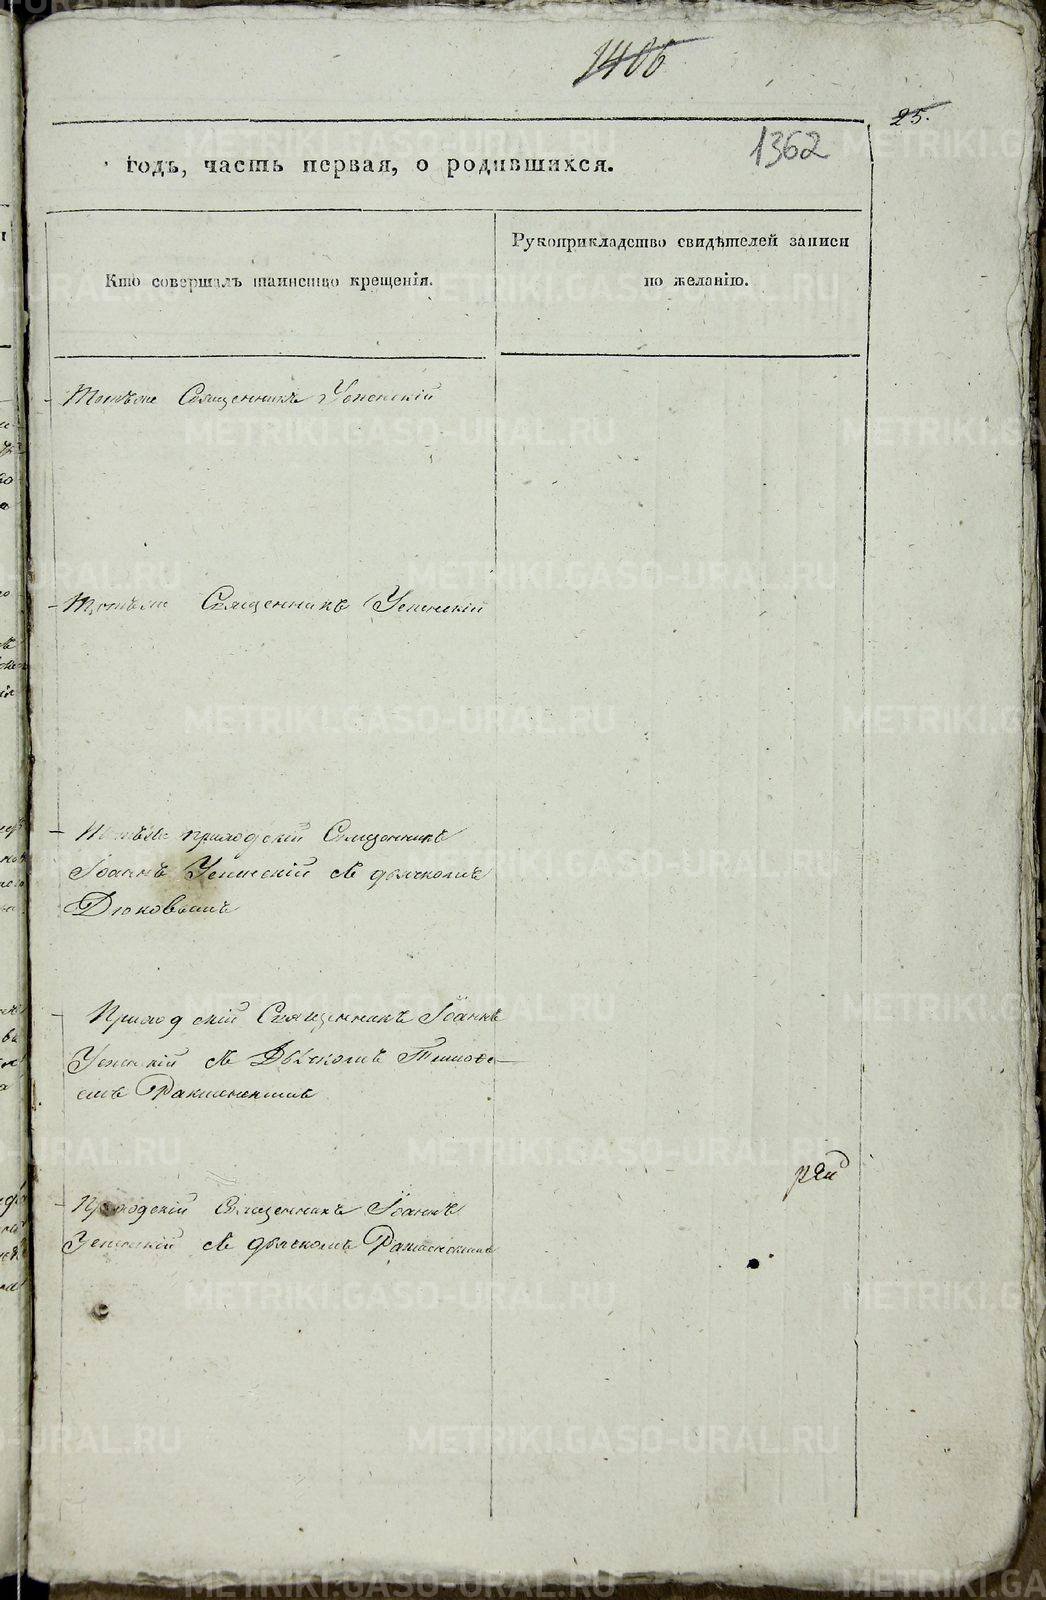 1406
25.
1362
годъ, часть первая, о родившихся.
Рукоприкладство свидѣтелей записи
по желанію.
Кто совершалъ таинство крещенія.
Тотъже Священникъ Успенскій
Тотъже Священникъ Успенскій
Тотъже приходскій Священникъ
Іоаннъ Успенскій съ дьячкомъ
Дюковымъ
Приходскій Священникъ Іоаннъ
Успенскій съ Дьячкомъ
Приходскій Священникъ Іоаннъ
Успенскій съ дьячкомъ
METRIKI.GASO-URAL.RU